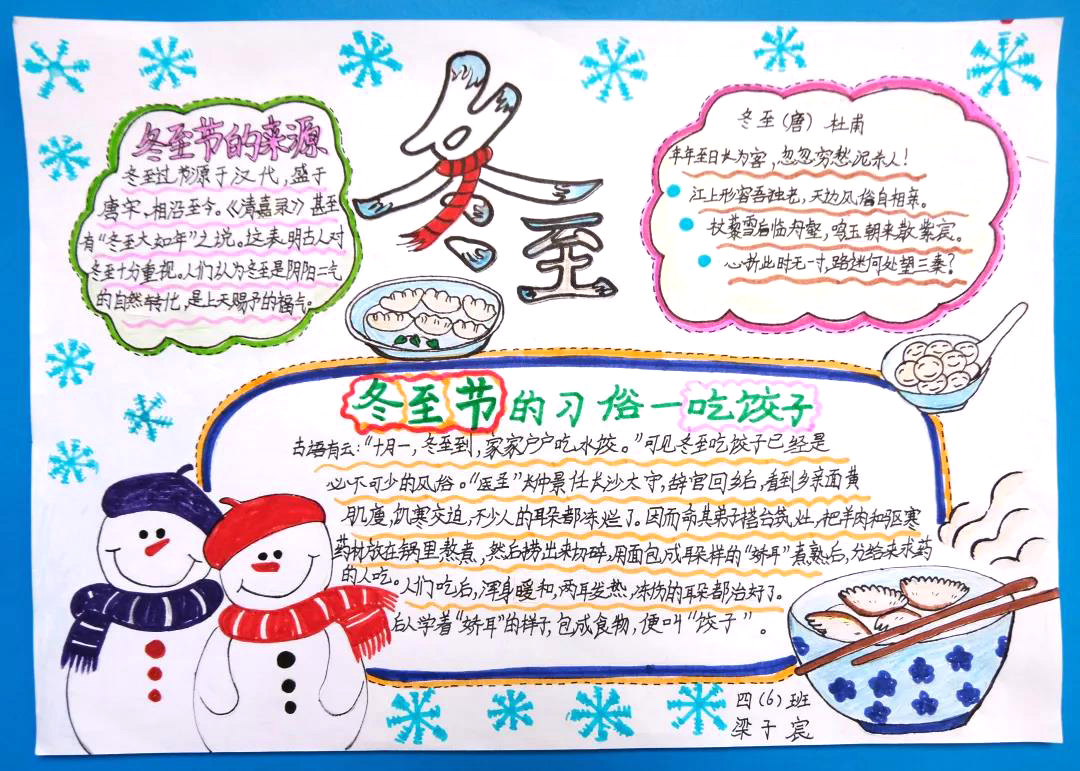 冬至
冬至节的来源
冬至过节源于汉代，盛于
唐宋，相沿至今。《清嘉录》甚至
有“冬至大如年”之说。这表明古人对
冬至十分重视。人们认为冬至是阴阳二气
的自然转化，是上天赐予的福气。
冬至（唐）杜甫
年年至日长为客，忽忽穷愁泥杀人！
江上形容吾独老，天边风俗自相亲。
杖藜雪后临丹壑，鸣玉朝来散紫宸。
心折此时无一寸，路迷何处望三秦？
冬至节的习俗一吃饺子
古语有云：“十月一，冬至到，家家户户吃水饺。”可见冬至吃饺子已经是
必不可少的风俗。“医圣”张仲景任长沙太守，辞官回乡后，看到乡亲面黄
肌瘦，饥寒交迫，不少人的耳朵都冻烂了。因而命其弟子搭台筑灶，把羊肉和驱寒
药材放在锅里熬煮，然后捞出来切碎，用面包成耳朵样的“娇耳”煮熟后，分给来求药
的人吃。人们吃后，浑身暖和，两耳发热，冻伤的耳朵都治好了。
后人学着“娇耳”的样子，包成食物，便叫“饺子”。
四（6）班
梁子宸